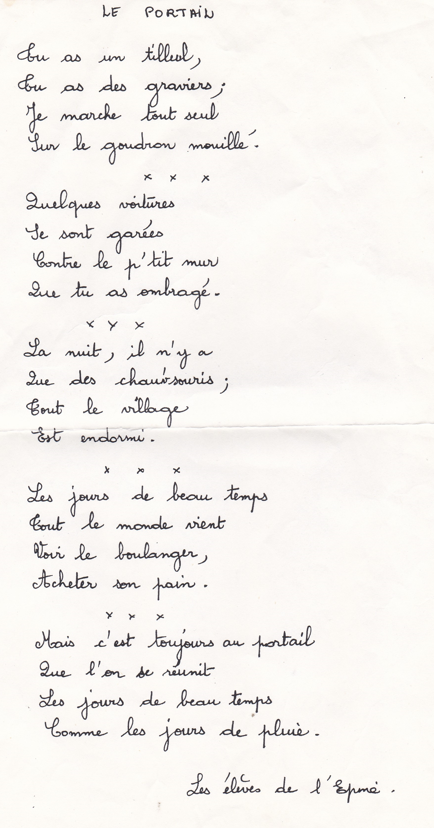 LE PORTAIL
Tu as un tilleul,
Tu as des graviers;
Je marche tout seul
Sur le goudron mouillé.
x x x
Quelques voitures
Se sont garées
Contre le p'tit mur
Que tu as ombragé.
x y x
La nuit, il n'y a
Que des chauv'souris;
Tout le village
Est endormi.
x x x
Les jours de beau temps
Tout le monde vient
Voir le boulanger,
Acheter son pain.
x x x
Mais c'est toujours au portail
Que l'on se réunit
Les jours de beau temps
Comme les jours de pluie.
Les élèves de l'Epine.